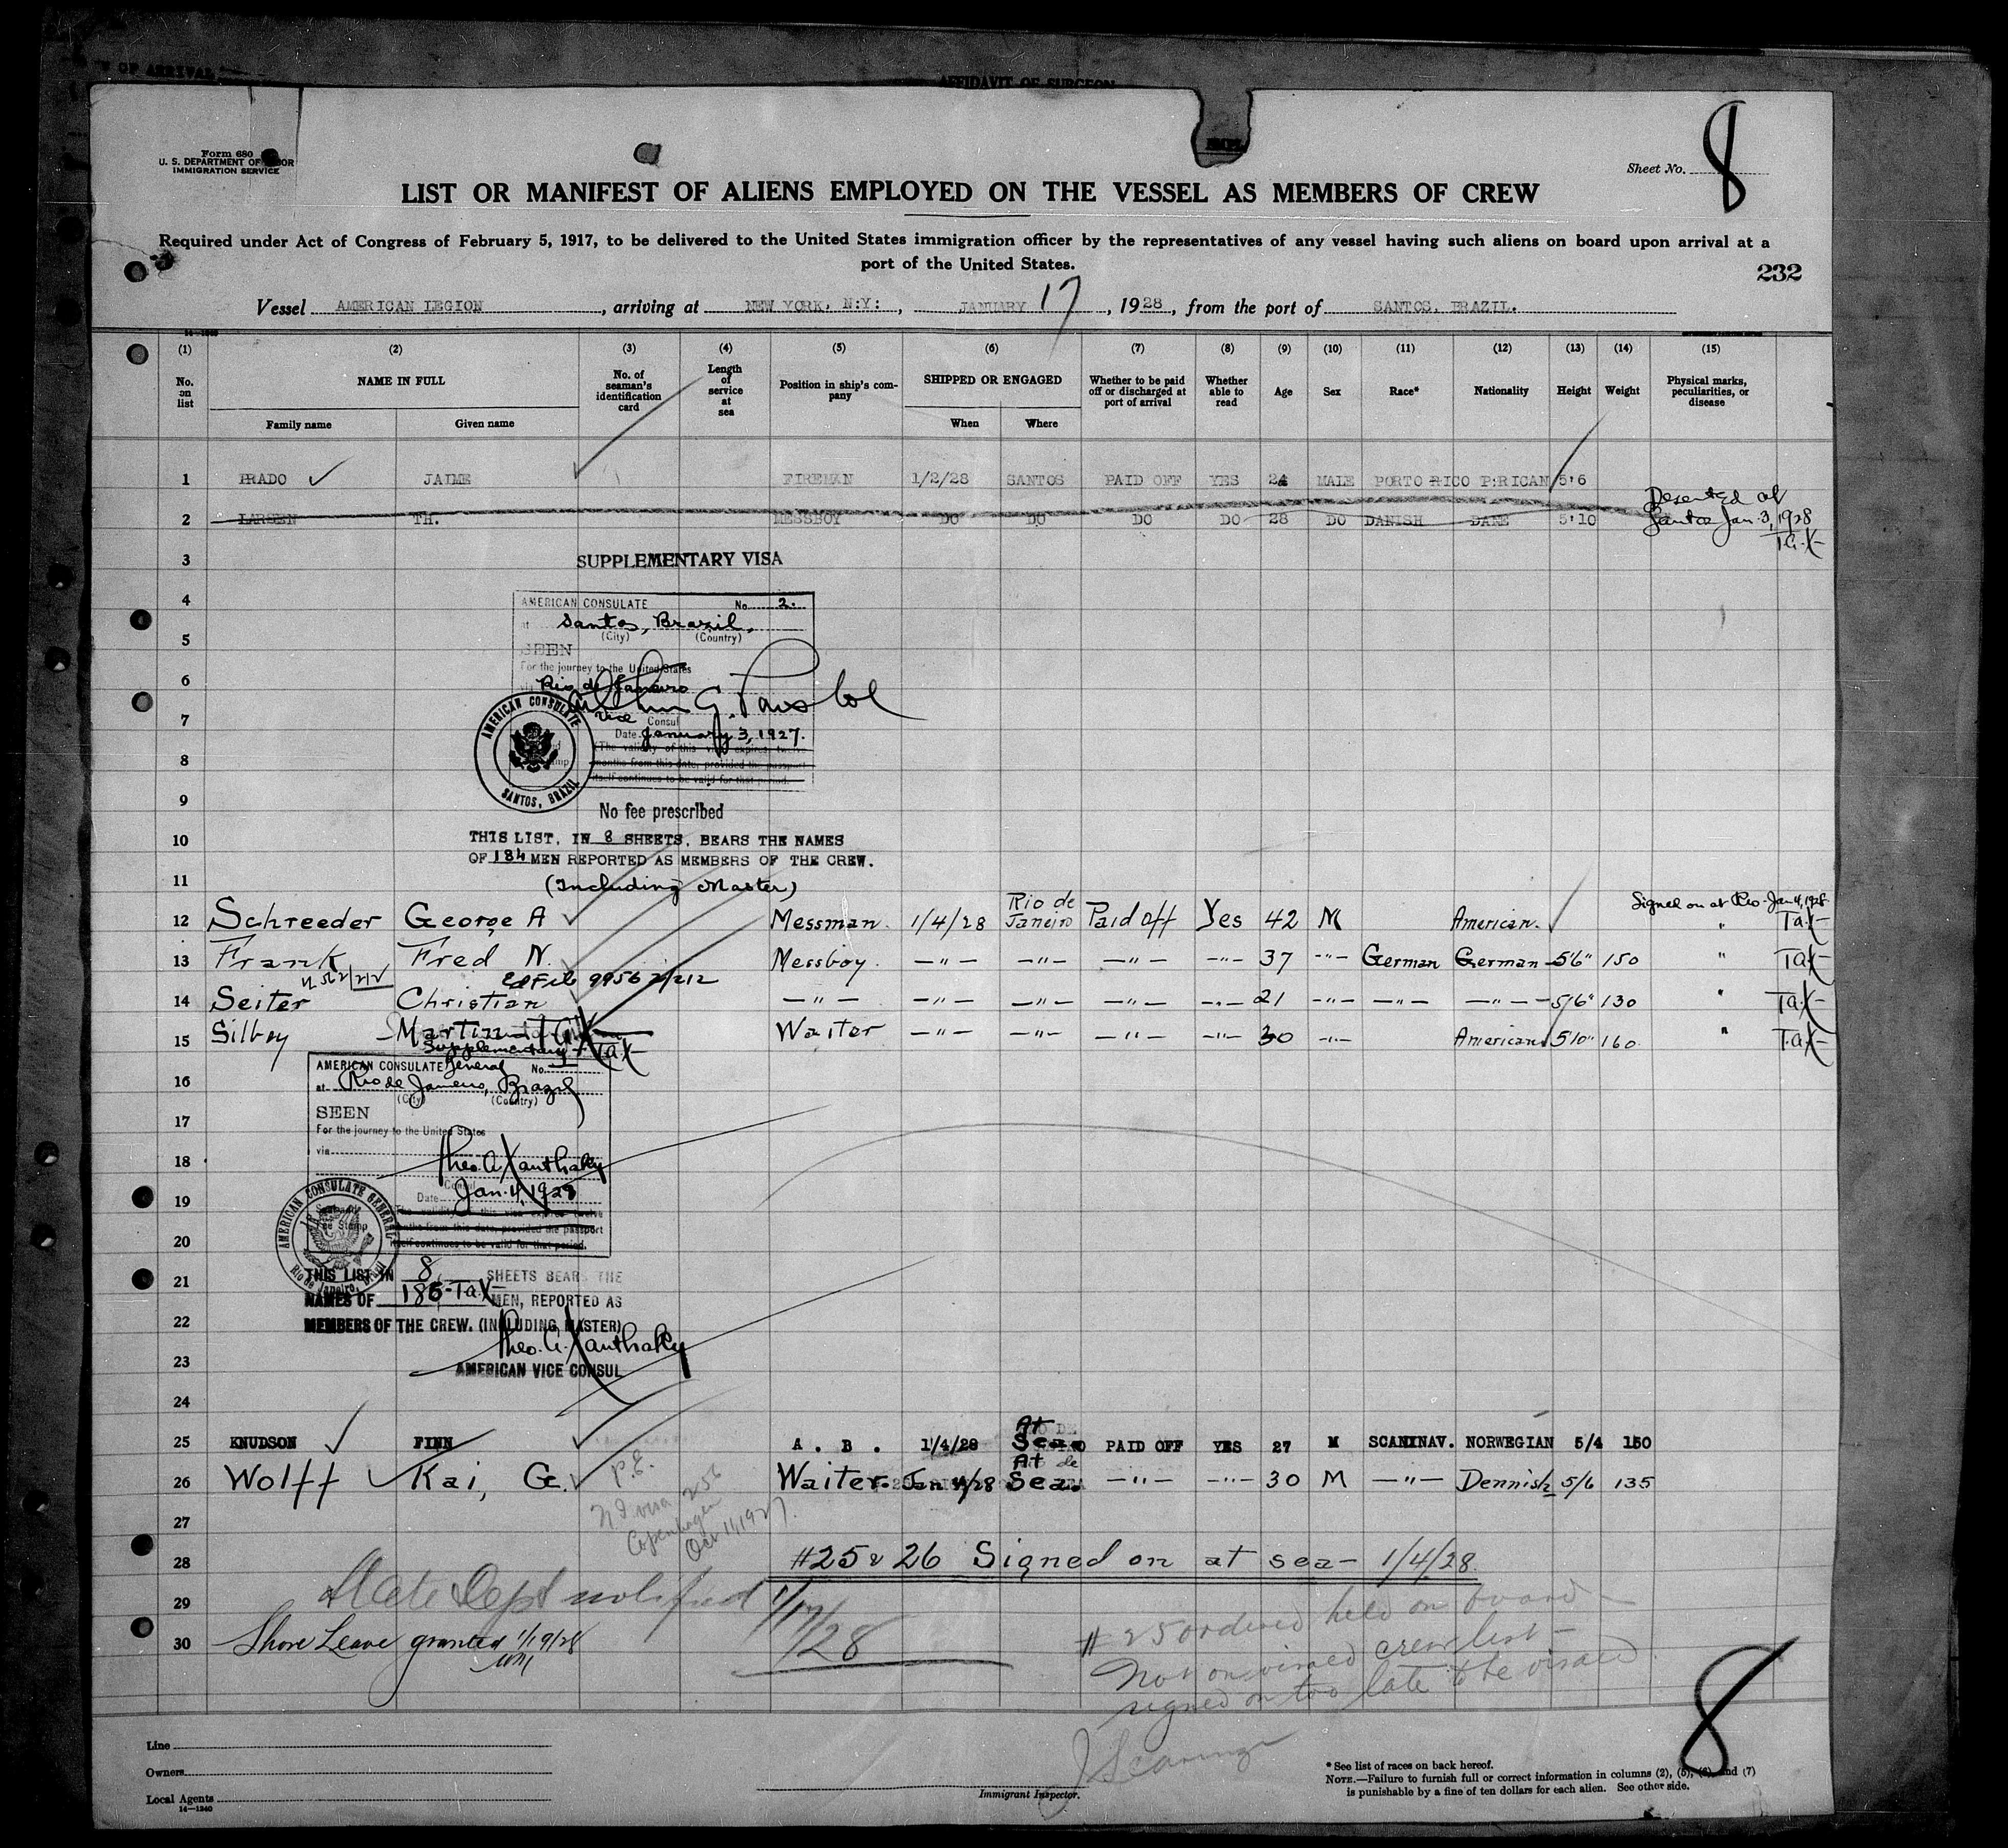 OF ARRIVAL
AFFIDAVIT OF SURGEON
Form 680
U. S. DEPARTMENT OF LABOR
IMMIGRATION SERVICE
Sheet No. 8
LIST OR MANIFEST OF ALIENS EMPLOYED ON THE VESSEL AS MEMBERS OF CREW
Required under Act of Congress of February 5, 1917, to be delivered to the United States immigration officer by the representatives of any vessel having such aliens on board upon arrival at a
port of the United States.
232
Vessel AMERICAN LEGION, arriving at NEW YORK, N:Y:, JANUARY 17, 1928, from the port of SANTOS, BRAZIL.
(1) (2) (3) (4) (5) (6) (7) (8) (9) (10) (11) (12) (13) (14) (15)
No. on list
NAME IN FULL
Family name Given name
No. of seaman's identification card
Length of service at sea
Position in ship's company
SHIPPED OR ENGAGED
When Where
Whether to be paid off or discharged at port of arrival
Whether able to read
Age
Sex
Race*
Nationality
Height
Weight
Physical marks, peculiarities, or disease
1 PRADO JAIME FIREMAN 1/2/28 SANTOS PAID OFF YES 24 MALE PORTO RICO P:RICAN 5'6
2 LARSEN TH. MESSBOY DO DO DO DO 28 DO DANISH DANE 5'10 Deserted at
Santos Jan. 3, 1928
T.A.X
3 SUPPLEMENTARY VISA
4 AMERICAN CONSULATE No. 2.
at Santos, Brazil,
5 (City) (Country)
SEEN
For the journey to the United States
6 via Rio de Janeiro
7 Vice Consul
Date January 3, 1927.
(The validity of this visa expires twelve
8 months from this date, provided the passport
itself continues to be valid for that period.
AMERICAN CONSULATE
SANTOS, BRAZIL
9 No fee prescribed
10 THIS LIST, IN 8 SHEETS, BEARS THE NAMES
OF 184 MEN REPORTED AS MEMBERS OF THE CREW.
11 (Including Master)
12 Schreeder George A Messman. 1/4/28 Rio de Janeiro Paid off Yes 42 M American. Signed on at Rio Jan 4, 1928 TAX
13 Frank Fred N. Messboy. —"— —"— —"— —"— 37 —"— German German 5'6" 150 " TAX
14 Seiter Christian —"— —"— —"— —"— —"— 21 —"— —"— —"— 5'6" 130 " TAX
15 Silbey Martin Waiter —"— —"— —"— —"— 30 —"— American 5'10" 160. " TAX
Supplementary TAX
AMERICAN CONSULATE General No.
16 at Rio de Janeiro, Brazil
(City) (Country)
SEEN
17 For the journey to the United States
via
18 Theo. A. Xanthaky
Consul
19 Date Jan. 4, 1928
(The validity of this visa expires twelve
months from this date, provided the passport
20 itself continues to be valid for that period.
AMERICAN CONSULATE GENERAL
Rio de Janeiro, Brazil
21 THIS LIST IN 8 SHEETS BEARS THE
NAMES OF 185-TAX MEN, REPORTED AS
22 MEMBERS OF THE CREW. (INCLUDING MASTER)
Theo. A. Xanthaky
23 AMERICAN VICE CONSUL
24
25 KNUDSON FINN A. B. 1/4/28 At Sea PAID OFF YES 27 M SCANINAV. NORWEGIAN 5/4 150
26 Wolff Kai, G. Waiter. Jan 4/28 At Sea. —"— —"— 30 M —"— Dennish 5/6 135
P.E.
visa 256
Copenhagen
Oct 11, 1927.
27
28 #25 & 26 Signed on at sea — 1/4/28.
29 State Dept notified 1/17/28
30 Shore Leave granted 1/19/28
# 25 ordered held on board —
Not on visaed crew list —
signed on too late to be visaed
8
Line
Owners
Local Agents
14—1240
Immigrant Inspector.
* See list of races on back hereof.
NOTE.—Failure to furnish full or correct information in columns (2), (5), (6), and (7)
is punishable by a fine of ten dollars for each alien. See other side.